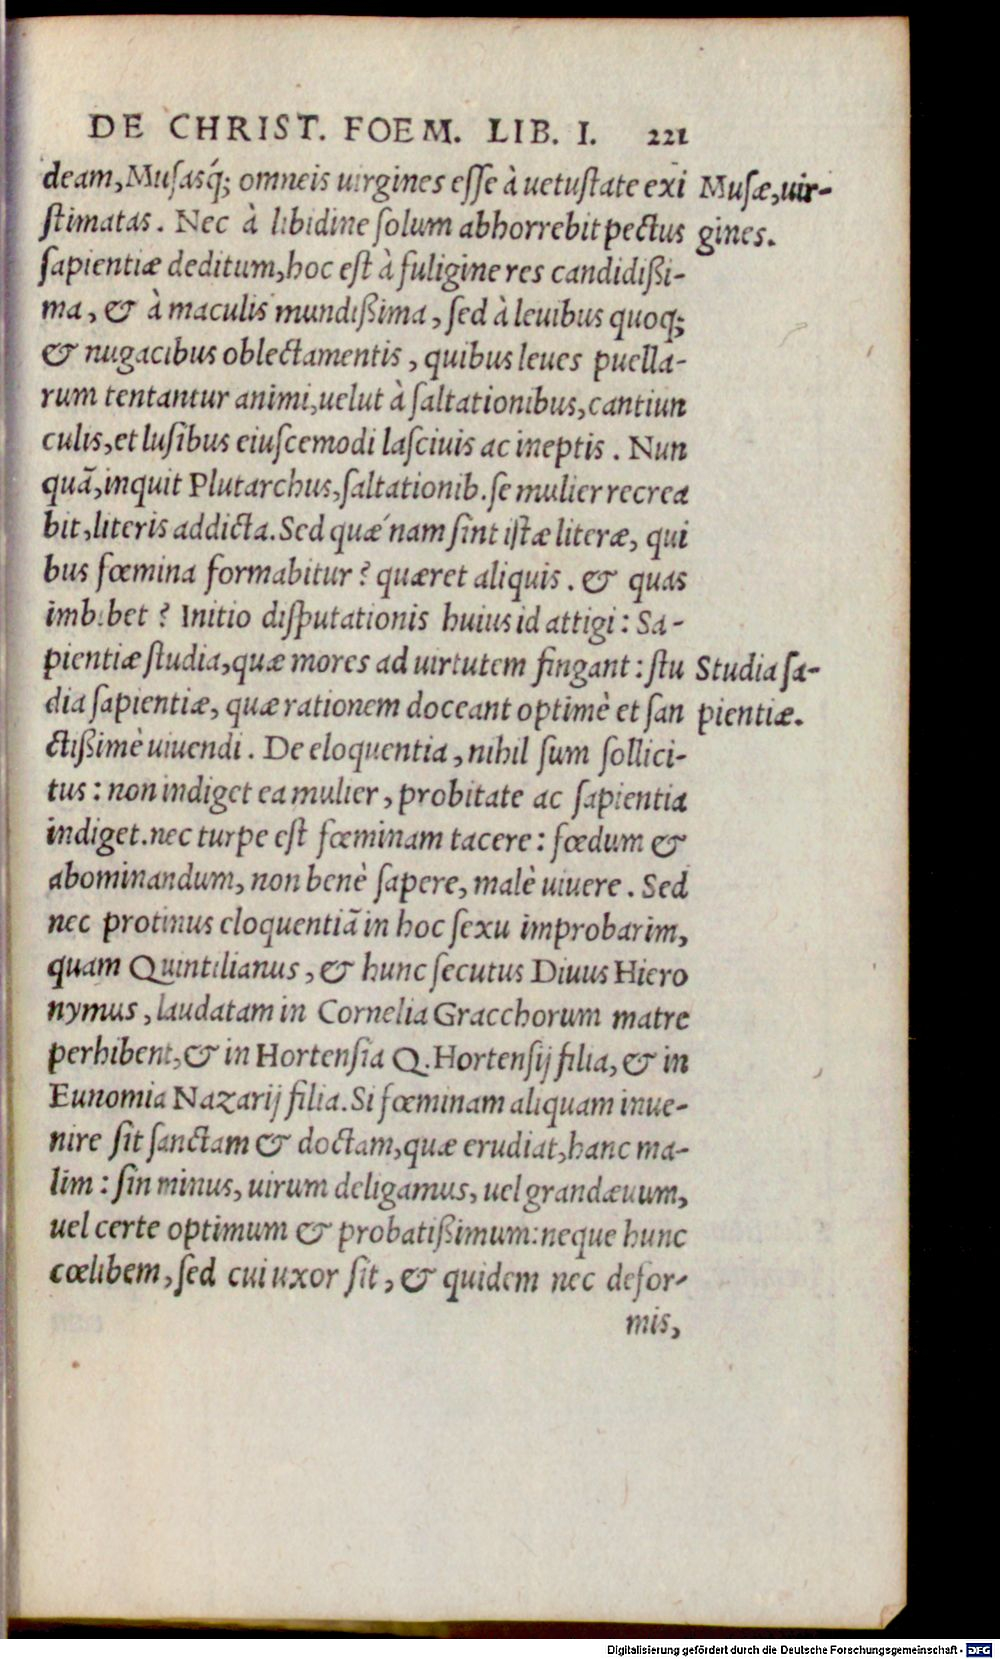 DE CHRIST. FOEM. LIB. I. 221
deam, Musasq́; omneis uirgines esse à uetustate exi
Musæ, uir-
stimatas. Nec à libidine solum abhorrebit pectus
gines.
sapientiæ deditum, hoc est à fuligine res candidißi-
ma, & à maculis mundißima, sed à leuibus quoq;
& nugacibus oblectamentis, quibus leues puella-
rum tentantur animi, uelut à saltationibus, cantiun
culis, et lusibus eiuscemodi lasciuis ac ineptis. Nun
quã, inquit Plutarchus, saltationib. se mulier recrea
bit, literis addicta. Sed quæ´nam sint istæ literæ, qui
bus fœmina formabitur? quæret aliquis. & quas
imbibet? Initio disputationis huius id attigi: Sa-
pientiæ studia, quæ mores ad uirtutem fingant: stu
Studia sa-
dia sapientiæ, quæ rationem doceant optimè et san
pientiæ.
ctißimè uiuendi. De eloquentia, nihil sum sollici-
tus: non indiget ea mulier, probitate ac sapientia
indiget. nec turpe est fœminam tacere: fœdum &
abominandum, non benè sapere, malè uiuere. Sed
nec protinus eloquentiã in hoc sexu improbarim,
quam Quintilianus, & hunc secutus Diuus Hiero
nymus, laudatam in Cornelia Gracchorum matre
perhibent, & in Hortensia Q. Hortensij filia, & in
Eunomia Nazarij filia. Si fœminam aliquam inue-
nire sit sanctam & doctam, quæ erudiat, hanc ma-
lim: sin minus, uirum deligamus, uel grandæuum,
uel certe optimum & probatißimum: neque hunc
cœlibem, sed cui uxor sit, & quidem nec defor-
mis,
Digitalisierung gefördert durch die Deutsche Forschungsgemeinschaft - DFG